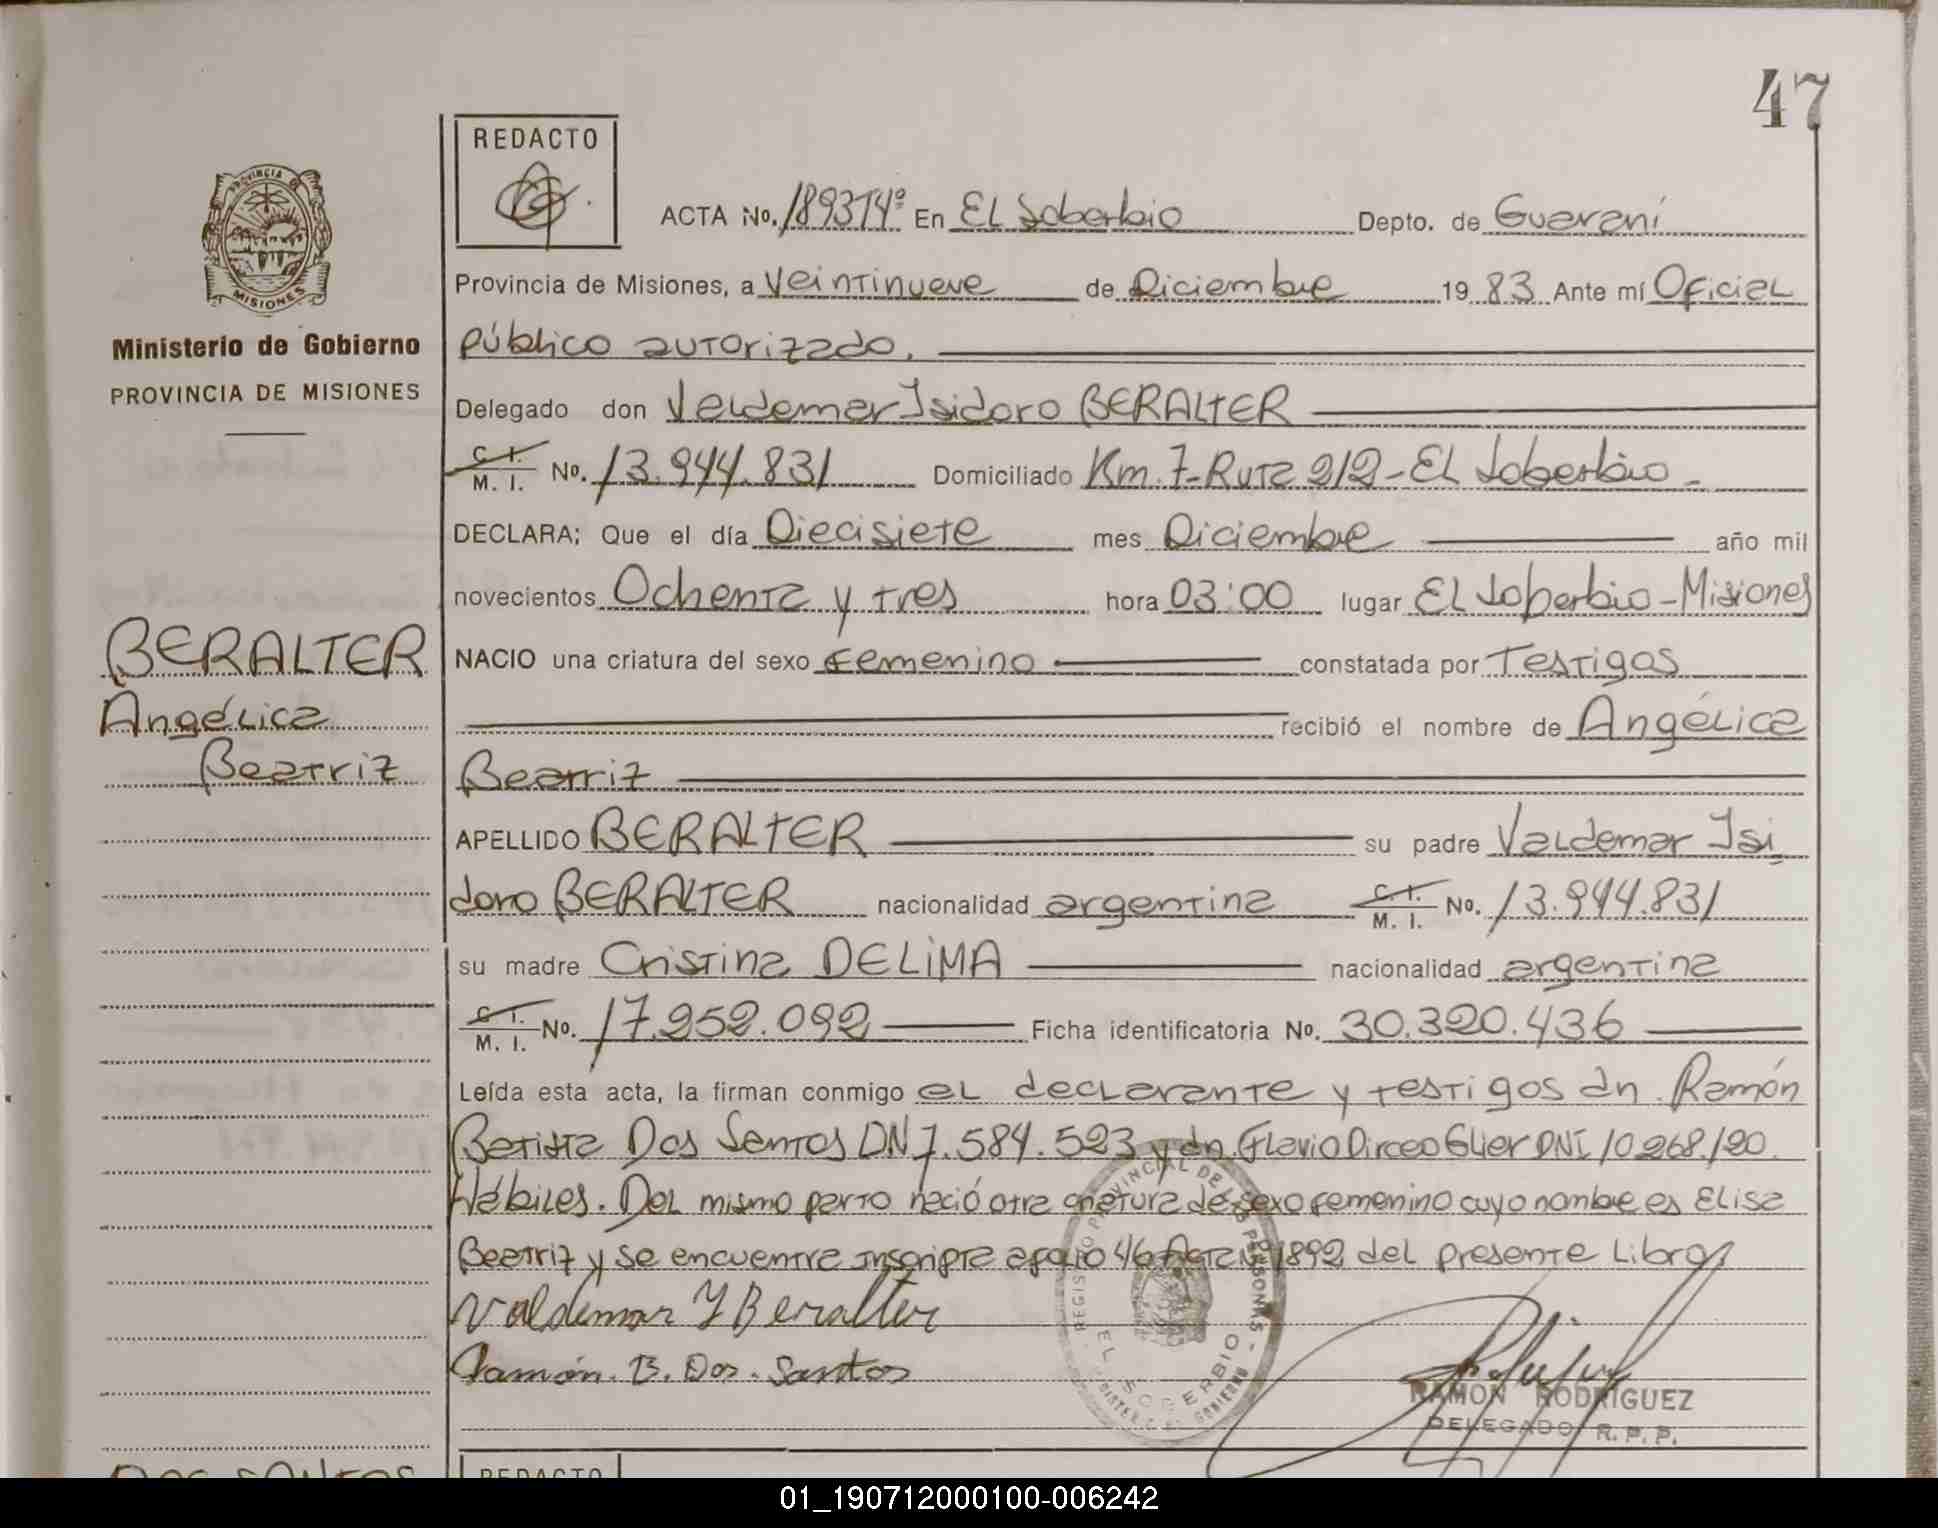 47
REDACTO
PROVINCIA
MISIONES
Ministerio de Gobierno
PROVINCIA DE MISIONES
ACTA No. 1893 T4º En EL Soberbio Depto. de Guaraní
Provincia de Misiones, a Veintinueve de Diciembre 1983 Ante mí Oficial
Público autorizado.
Delegado don Valdemar Isidoro BERALTER
C. I. M. I. No. 13.944.831 Domiciliado Km. 7-Ruta 212-EL Soberbio-
DECLARA; Que el día Diecisiete mes Diciembre año mil
novecientos Ochenta y tres hora 03:00 lugar EL Soberbio-Misiones
BERALTER
Angélica
Beatriz
NACIO una criatura del sexo femenino constatada por Testigos
recibió el nombre de Angélica
Beatriz
APELLIDO BERALTER su padre Valdemar Isi
doro BERALTER nacionalidad argentina C. I. M. I. No. 13.944.831
su madre Cristina DELIMA nacionalidad argentina
C. I. M. I. No. 17.252.092 Ficha identificatoria No. 30.320.436
Leída esta acta, la firman conmigo el declarante y testigos dn. Ramón
Batista Dos Santos DN 7.584.523 y dn. Flavio Dirceo Glier DNI 10.268.120.
Hábiles. Del mismo parto nació otra criatura de sexo femenino cuyo nombre es Elisa
Beatriz y se encuentra inscripta a folio 46 Acta Nº 1892 del presente Libro
Valdemar Y Beralter
Ramón. B. Dos. Santos
REGISTRO PROVINCIAL DE LAS PERSONAS
EL SOBERBIO
RAMON RODRIGUEZ
DELEGADO R. P. P.
DOS SANTOS
REDACTO
01_190712000100-006242